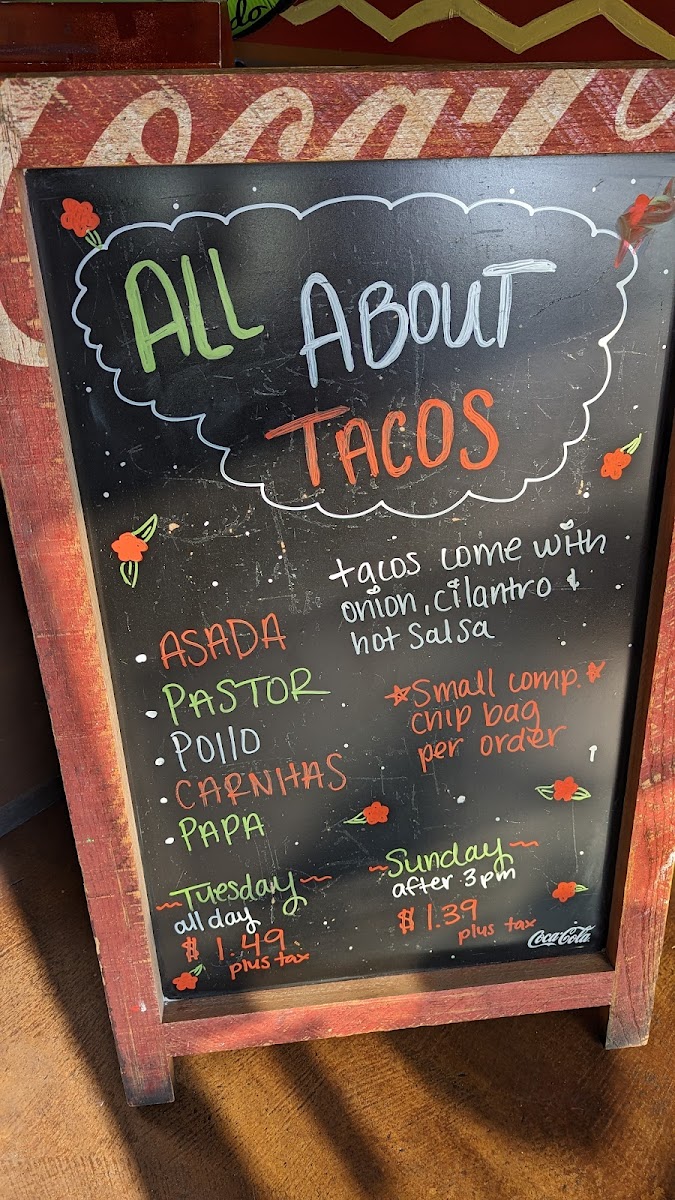 Coca-Co
ALL ABOUT
TACOS
tacos come with
onion, cilantro &
hot salsa
• ASADA
• PASTOR
• Pollo
• CARNITAS
• PAPA
*Small comp.*
chip bag
per order
~Tuesday~
all day
$1.49
plus tax
~Sunday~
after 3pm
$1.39
plus tax
Coca-Cola